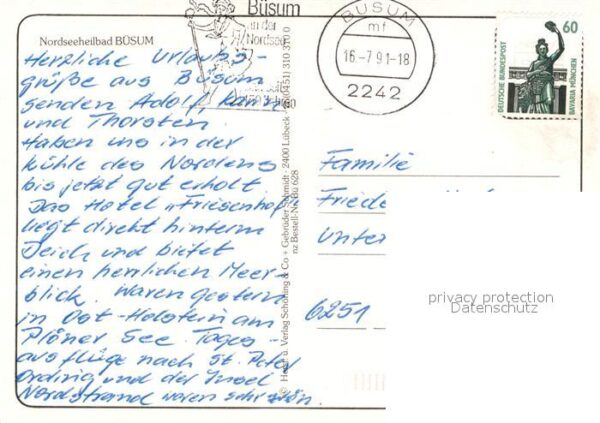 Nordseeheilbad BÜSUM
Herzliche Urlaubs-
grüße aus Büsum
senden Adolf, Karin
und Thorsten.
Haben uns in der
Kühle des Nordens
bis jetzt gut erholt.
Das Hotel „Friesenhof"
liegt direkt hinterm
Deich und bietet
einen herrlichen Meer-
blick. Waren gestern
in Ost-Holstein am
Plöner See. Tages-
ausflüge nach St. Peter
Ording und der Insel
Nordstrand waren sehr schön.
Büsum
in der
Nordsee
BÜSUM
mf
16.-7.91-18
2242
60
DEUTSCHE BUNDESPOST
BAVARIA MÜNCHEN
© Hans u. Verlag Schöning & Co + Gebrüder Schmidt · 2400 Lübeck · (0451) 310 310 0
nz Bestell-Nr. Bü 628
Familie
Friede
Unter
6251
privacy protection
Datenschutz